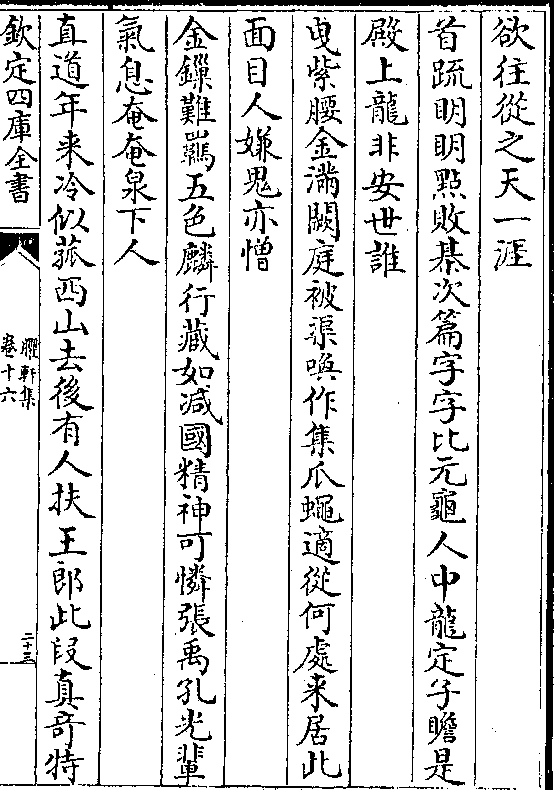 欲往從之天一涯
首䟽明明㸃敗棊次篇字字比元龜人中龍定子瞻是
殿上龍非安世誰
曵紫腰金滿闕庭被渠喚作集瓜蠅適從何處来居此
面目人嫌鬼亦憎
金鏁難羈五色麟行藏如減國精神可憐張禹孔光軰
氣息奄奄泉下人
直道年来冷似菰西山去後有人扶王郎此段真竒特
欽定四庫全書
臞軒集
卷十六
二十三